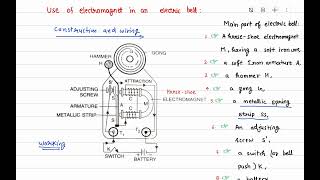 Use of electromagnet in an electric bell:
Construction and wiring
HAMMER
H
GONG
ATTRACTION
ADJUSTING
SCREW
ARMATURE
METALLIC STRIP
Horse-Shoe
ELECTROMAGNET
M
T₁
T₂
K
SWITCH
BATTERY
working
Main part of electric bell:
1. A horse-shoe electromagnet
M, having a soft iron core
2. A soft iron armature A
3. a hammer H
4. a gong G
5. a metallic spring
strip SS,
6. An adjusting
screw S'
7. a switch (or bell
push) K,
8. a battery